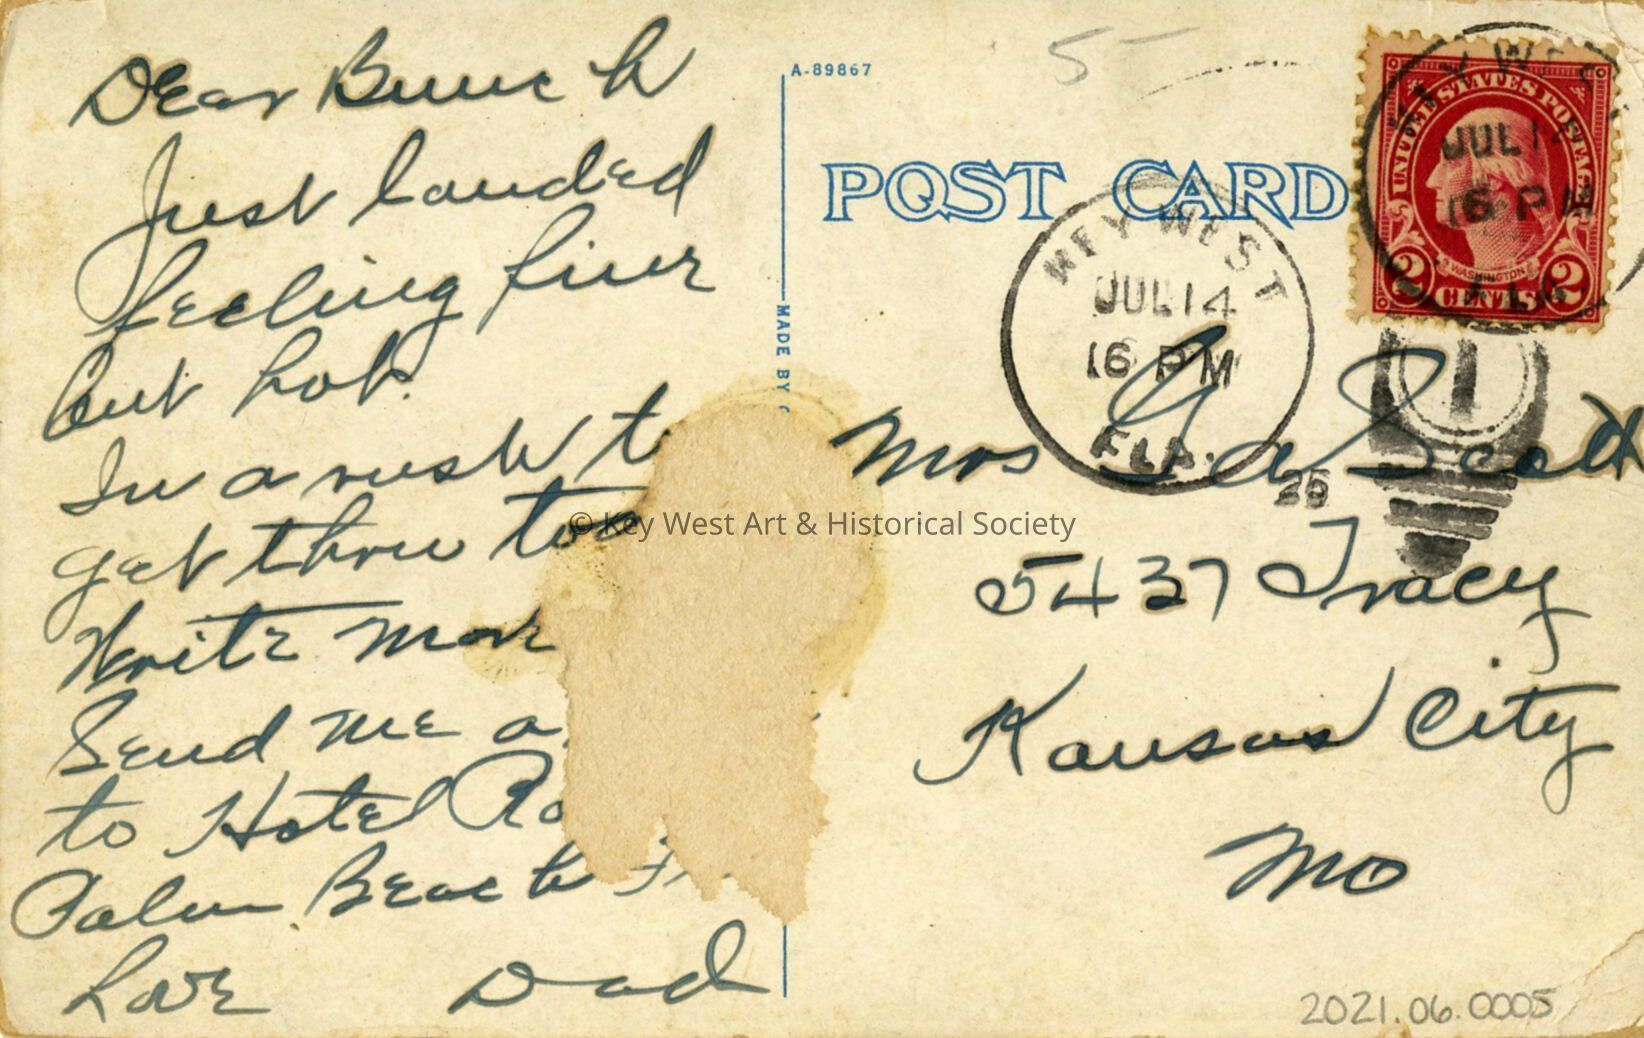 Dear Bunch
Just landed
feeling fine
but hot.
In a rush t
get thru
Write mor
Send me a
to Hotel
Palm Beach
Love Dad
A-89867
MADE BY
POST CARD
KEY WEST
JUL 14
16 PM
FLA.
UNITED STATES POSTAGE
WASHINGTON
2 CENTS 2
KEY WEST
JUL 14
6 PM
1
5-
Mrs G A Scott
5437 Tracy
Kansas City
Mo
© Key West Art & Historical Society
2021.06.0005